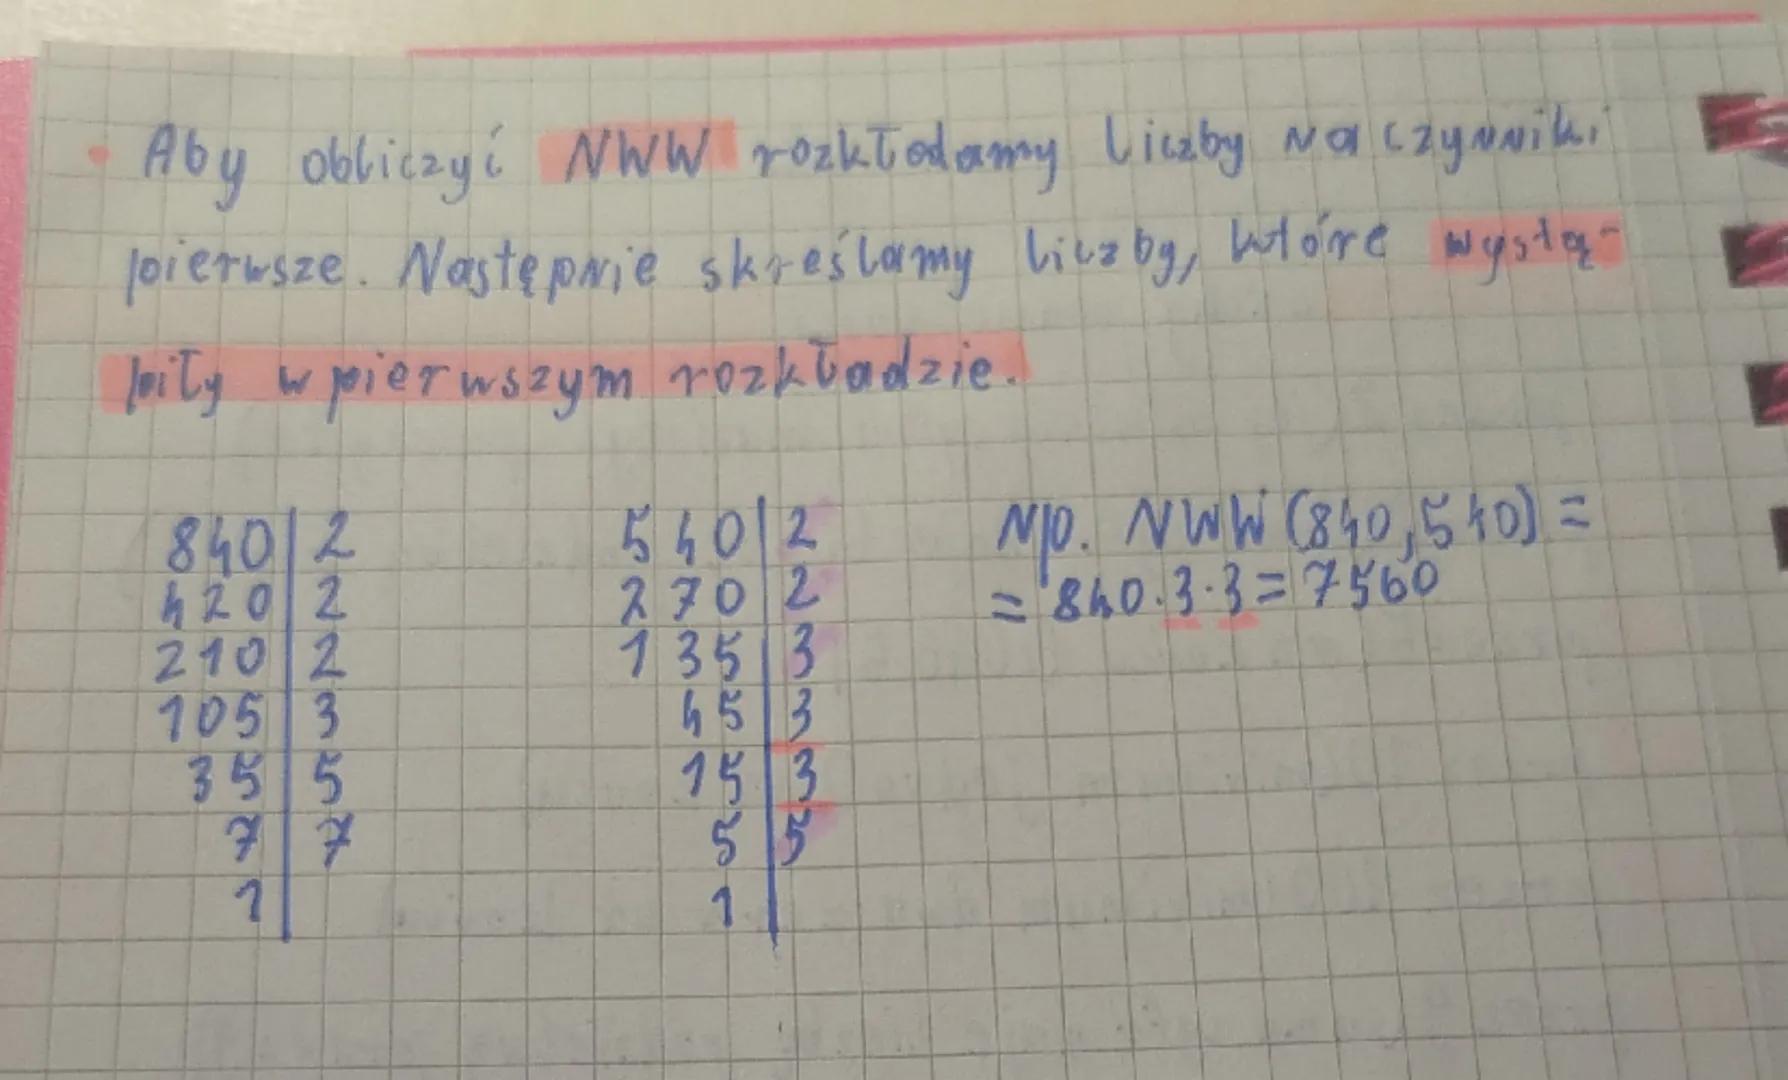 Aby obliczyć NWW rozkładamy liczby na czynniki
pierwsze. Następnie skreślamy liczby, które wystą-
piły w pierwszym rozkładzie.
840 | 2
420 | 2
210 | 2
105 | 3
35 | 5
7 | 7
1 |
540 | 2
270 | 2
135 | 3
45 | 3
15 | 3
5 | 5
1 |
Np. NWW (840, 540) =
= 840 · 3 · 3 = 7560